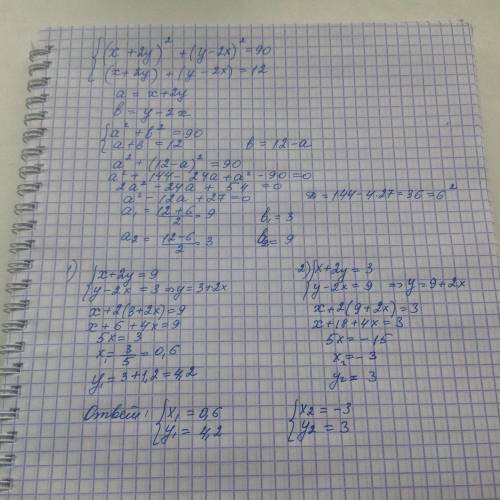 {(x + 2y)² + (y - 2x)² = 90
(x + 2y) + (y - 2x) = 12
a = x + 2y
b = y - 2x
{a² + b² = 90
a + b = 12 b = 12 - a
a² + (12 - a)² = 90
a² + 144 - 24a + a² - 90 = 0
2a² - 24a + 54 = 0
a² - 12a + 27 = 0 D = 144 - 4·27 = 36 = 6²
a₁ = (12 + 6)/2 = 9 b₁ = 3
a₂ = (12 - 6)/2 = 3 b₂ = 9
1) {x + 2y = 9
y - 2x = 3 ⇒ y = 3 + 2x
x + 2(3 + 2x) = 9
x + 6 + 4x = 9
5x = 3
x₁ = 3/5 = 0,6
y₁ = 3 + 1,2 = 4,2
2) {x + 2y = 3
y - 2x = 9 ⇒ y = 9 + 2x
x + 2(9 + 2x) = 3
x + 18 + 4x = 3
5x = -15
x₂ = -3
y₂ = 3
Ответ: {x₁ = 0,6 {x₂ = -3
y₁ = 4,2 y₂ = 3